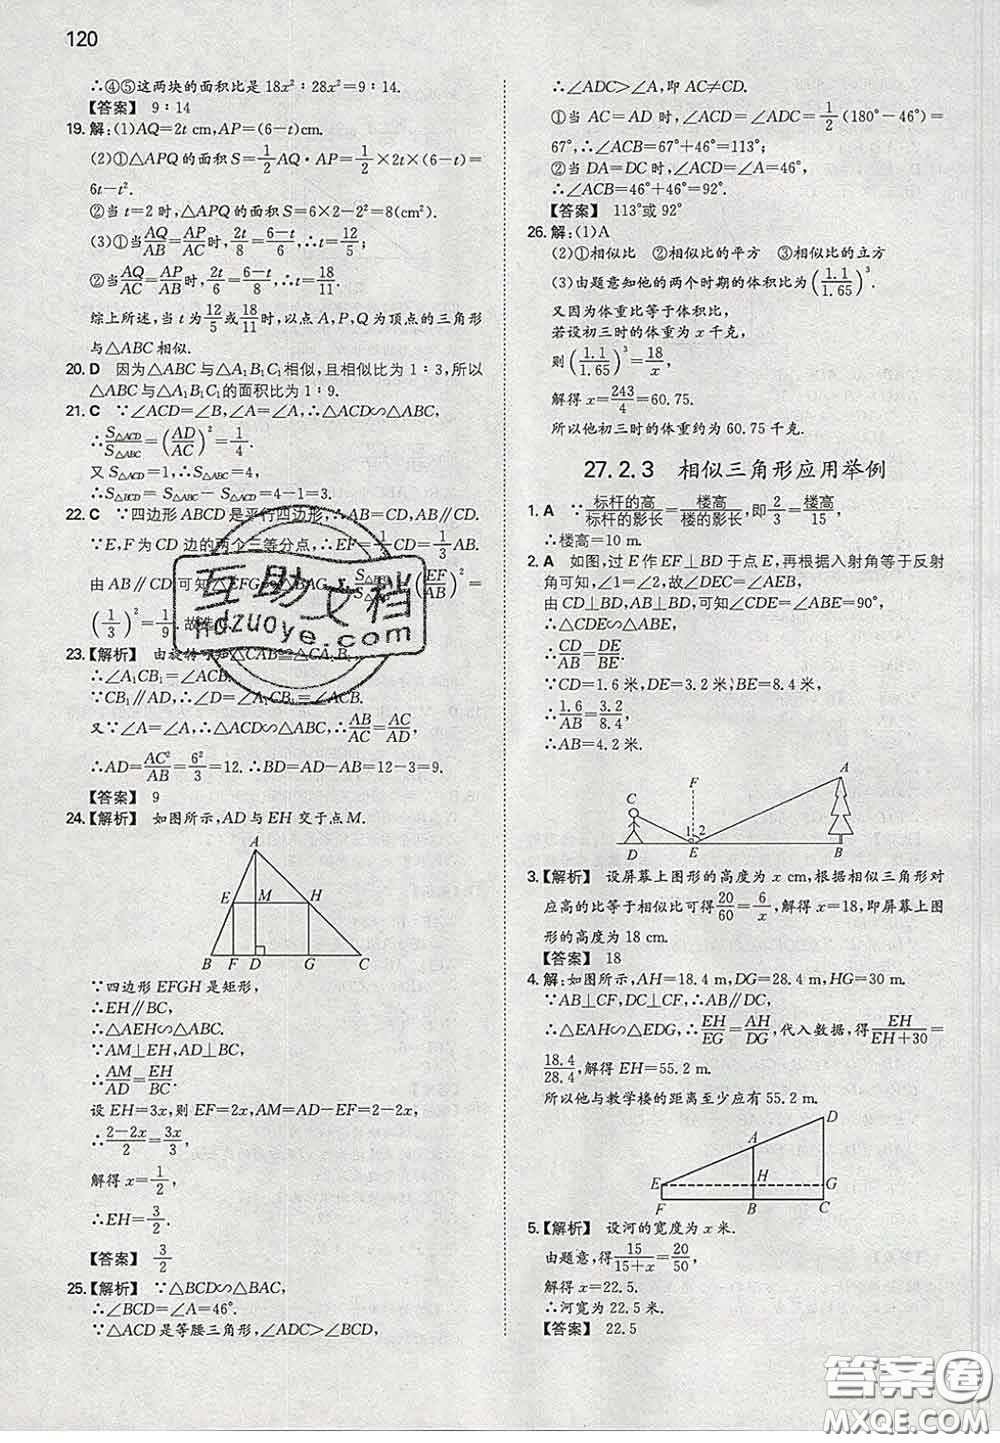 120
∴④⑤这两块的面积比是 18x²：28x²＝9：14.
【答案】 9：14
19. 解：(1)AQ＝2t cm,AP＝(6－t)cm.
(2)①△APQ 的面积 S＝1/2 AQ·AP＝1/2×2t×(6－t)＝
6t－t².
②当 t＝2 时,△APQ 的面积 S＝6×2－2²＝8(cm²).
(3)①当 AQ/AB＝AP/AC 时, 2t/8＝(6－t)/6,∴t＝12/5;
②当 AQ/AC＝AP/AB 时, 2t/6＝(6－t)/8,∴t＝18/11.
综上所述,当 t 为 12/5 或 18/11 时,以点 A,P,Q 为顶点的三角形
与△ABC 相似.
20. D 因为△ABC 与△A₁B₁C₁相似,且相似比为 1：3,所以
△ABC 与△A₁B₁C₁的面积比为 1：9.
21. C ∵∠ACD＝∠B,∠A＝∠A,∴△ACD∽△ABC,
∴S△ACD/S△ABC＝(AD/AC)²＝1/4.
又 S△ACD＝1,∴S△ABC＝4,
∴S△BCD＝S△ABC－S△ACD＝4－1＝3.
22. C ∵四边形 ABCD 是平行四边形,∴AB＝CD,AB∥CD.
∵E,F 为 CD 边的两个三等分点,∴EF＝1/3 CD＝1/3 AB.
由 AB∥CD 可知△EFG∽△BAG, (EF/AB)²＝
(1/3)²＝1/9.
23.【解析】 由旋转可知△CAB≌△CA₁B₁,
∴∠A₁CB₁＝∠ACB.
∵CB₁∥AD,∴∠D＝∠A₁CB₁＝∠ACB.
又∵∠A＝∠A,∴△ACD∽△ABC,∴AB/AC＝AC/AD,
∴AD＝AC²/AB＝6²/3＝12.∴BD＝AD－AB＝12－3＝9.
【答案】 9
24.【解析】 如图所示,AD 与 EH 交于点 M.
A
E M H
B F D G C
∵四边形 EFGH 是矩形,
∴EH∥BC,
∴△AEH∽△ABC.
∵AM⊥EH,AD⊥BC,
∴AM/AD＝EH/BC.
设 EH＝3x,则 EF＝2x,AM＝AD－EF＝2－2x,
∴(2－2x)/2＝3x/3,
解得 x＝1/2,
∴EH＝3/2.
【答案】 3/2
25.【解析】 ∵△BCD∽△BAC,
∴∠BCD＝∠A＝46°.
∵△ACD 是等腰三角形,∠ADC>∠BCD,
∴∠ADC>∠A,即 AC≠CD.
①当 AC＝AD 时,∠ACD＝∠ADC＝1/2(180°－46°)＝
67°,∴∠ACB＝67°＋46°＝113°;
②当 DA＝DC 时,∠ACD＝∠A＝46°,
∴∠ACB＝46°＋46°＝92°.
【答案】 113°或 92°
26. 解：(1)A
(2)①相似比 ②相似比的平方 ③相似比的立方
(3)由题意知他的两个时期的体积比为(1.1/1.65)³
又因为体重比等于体积比,
若设初三时的体重为 x 千克,
则(1.1/1.65)³＝18/x,
解得 x＝243/4＝60.75.
所以他初三时的体重约为 60.75 千克.
27.2.3 相似三角形应用举例
1. A ∵标杆的高/标杆的影长＝楼高/楼高的影长,即 2/3＝楼高/15,
∴楼高＝10 m.
2. A 如图,过 E 作 EF⊥BD 于点 E,再根据入射角等于反射
角可知,∠1＝∠2,故∠DEC＝∠AEB,
由 CD⊥BD,AB⊥BD,可知∠CDE＝∠ABE＝90°,
∴△CDE∽△ABE,
∴CD/AB＝DE/BE.
∵CD＝1.6 米,DE＝3.2 米,BE＝8.4 米,
∴1.6/AB＝3.2/8.4,
∴AB＝4.2 米.
F A
C
1 2
D E B
3.【解析】 设屏幕上图形的高度为 x cm,根据相似三角形对
应高的比等于相似比可得 20/60＝6/x,解得 x＝18,即屏幕上图
形的高度为 18 cm.
【答案】 18
4. 解：如图所示,AH＝18.4 m,DG＝28.4 m,HG＝30 m.
∵AB⊥CF,DC⊥CF,∴AB∥DC,
∴△EAH∽△EDG,∴EH/EG＝AH/DG,代入数据,得 EH/(EH＋30)＝
18.4/28.4,解得 EH＝55.2 m.
所以他与教学楼的距离至少应有 55.2 m.
D
A
E H G
F B C
5.【解析】 设河的宽度为 x 米.
由题意,得 15/(15＋x)＝20/50,
解得 x＝22.5.
∴河宽为 22.5 米.
【答案】 22.5
互助文档
Hdzuoye.com
答案圈
MXQE.COM